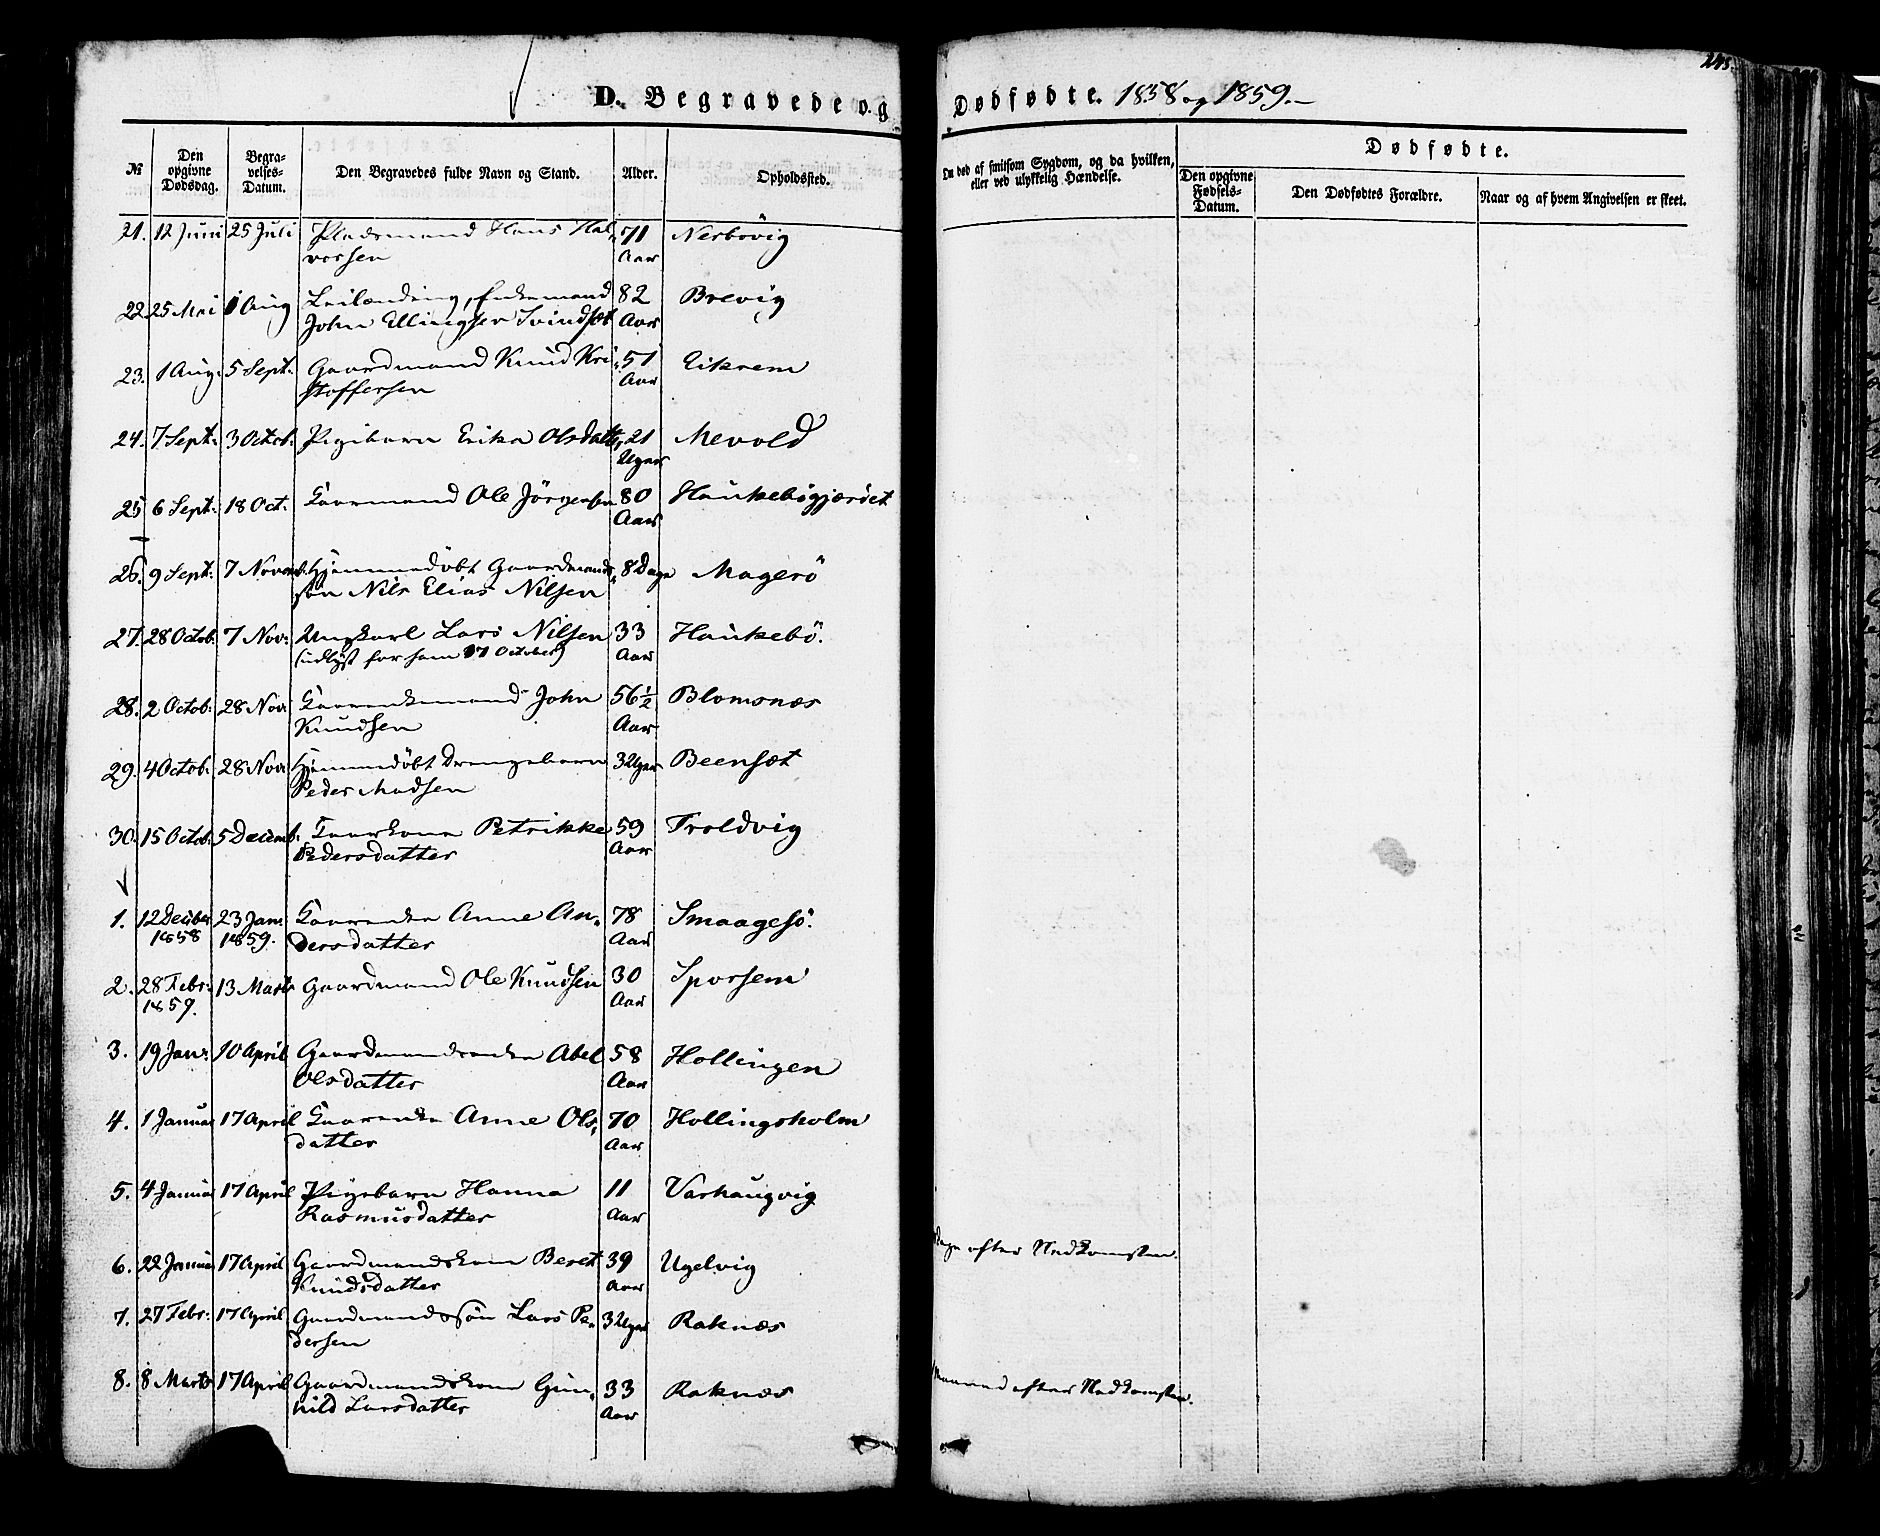 248.
D. Begravede og Dødfødte. 1858 og 1859.
№
Den opgivne Dødsdag.
Begra-velses-Datum.
Den Begravedes fulde Navn og Stand.
Alder.
Opholdssted.
Om død af smitsom Sygdom, og da hvilken, eller ved ulykkelig Hændelse.
Dødfødte.
Den opgivne Fødsels-Datum.
Den Dødfødtes Forældre.
Naar og af hvem Angivelsen er skeet.
21. 12 Juni 25 Juli Pladsmand Hans Hal- 71 Nerbövig
vorsen Aar
22. 25 Mai 1 Aug Leilænding, Enkemand 82 Brevig
John Ellingsen Svindsæt Aar
23. 1 Aug. 5 Sept. Gaardmand Knud Kri- 51 Eikrem
stoffersen Aar
24. 7 Sept: 3 Octob: Pigebarn Erika Olsdatt. 21 Mevold
Uger
25 6 Sept: 18 Oct: Kaarmand Ole Jörgensen 80 Haukebögjærdet
Aar
26. 9 Sept: 7 Novemb. Hjemmedöbt Gaardmands- 8 Dage Magerö
sön Nils Elias Nilsen
27. 28 Octob. 7 Nov: Ungkarl Lars Nilsen 33 Haukebö.
(udlyst for ham 17 October) Aar
28. 2 Octob: 28 Nov: Kaarenkemand John 56½ Blomsnæs
Knudsen Aar
29. 4 Octob: 28 Nov: Hjemmedöbt Drengebarn 3 Uger Beensæt
Peder Madsen
30. 15 Octob: 5 Decemb. Kaarkone Petrikke 59 Troldvig
Pedersdatter Aar
1. 12 Decbr 23 Jan. Kaarenke Anne An- 78 Smaagesö.
1858 1859. dersdatter Aar
2. 28 Febr: 13 Marts Gaardmand Ole Knudsen 30 Sporsem
1859. Aar
3. 19 Jan: 10 April Gaardmandsenke Abel 58 Hollingen
Olsdatter Aar
4. 1 Januar 17 April Kaarenke Anne Ols- 70 Hollingsholm
datter Aar
5. 4 Januar 17 April Pigebarn Hanna 11 Varhaugvig
Rasmusdatter Aar
6. 22 Januar 17 April Gaardmandskone Beret 39 Ugelvig Dage efter Nedkomsten.
Knudsdatter Aar
7. 27 Febr: 17 April Gaardmandssön Lars Pe- 3 Uger Raknæs
dersen
8. 8 Marts 17 April Gaardmandskone Gun- 33 Raknæs Maaned efter Nedkomsten.
hild Larsdatter Aar